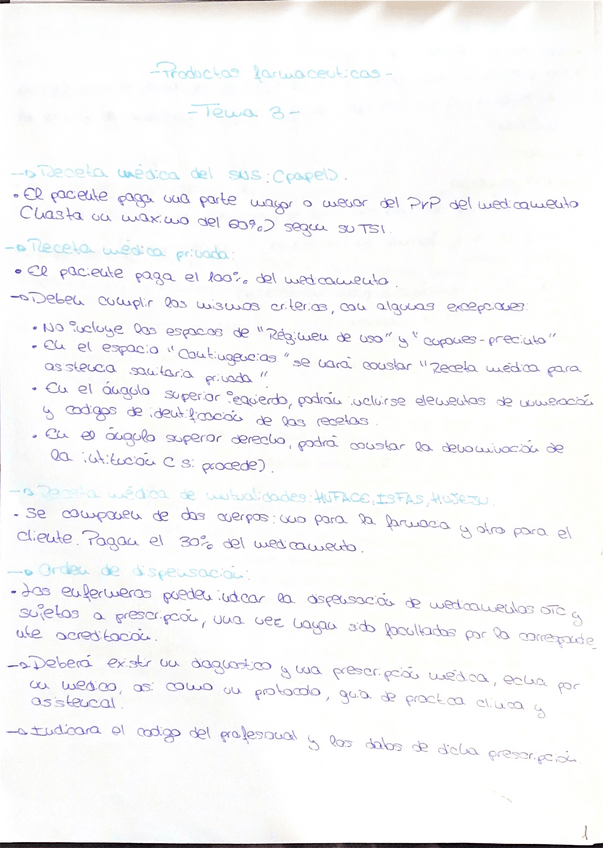 -Productos farmaceuticos-
-Tema 3-
→ Receta médica del SNS: (papel).
• El paciente paga una parte mayor o menor del PVP del medicamento
(hasta un maximo del 60%) segun su TSI.
→ Receta médica privada:
• El paciente paga el 100% del medicamento.
→ Deben cumplir los mismos criterios, con algunas excepciones:
• No incluye los espacios de "Régimen de uso" y "cupones-precinto"
• En el espacio "Contingencias" se hará constar "Receta médica para
asistencia sanitaria privada"
• En el ángulo superior izquierdo, podrán incluirse elementos de numeración
y codigos de identificación de las recetas.
• En el ángulo superior derecho, podrá constar la denominación de
la intitución (si procede).
→ Receta médica de mutualidades: MUFACE, ISFAS, MUJEJU.
• Se componen de dos cuerpos: uno para la farmacia y otro para el
cliente. Pagan el 30% del medicamento.
→ Orden de dispensación:
• Los enfermeros pueden indicar la dispensación de medicamentos OTC y
sujetos a prescripción, una vez hayan sido facultados por la correspondie
nte acreditación.
→ Deberá existir un diagnostico y una prescripción médica, echa por
un medico, asi como un protocolo, guia de practica clinica y
asistencial.
→ Indicara el codigo del profesional y los datos de dicha prescripción.
1